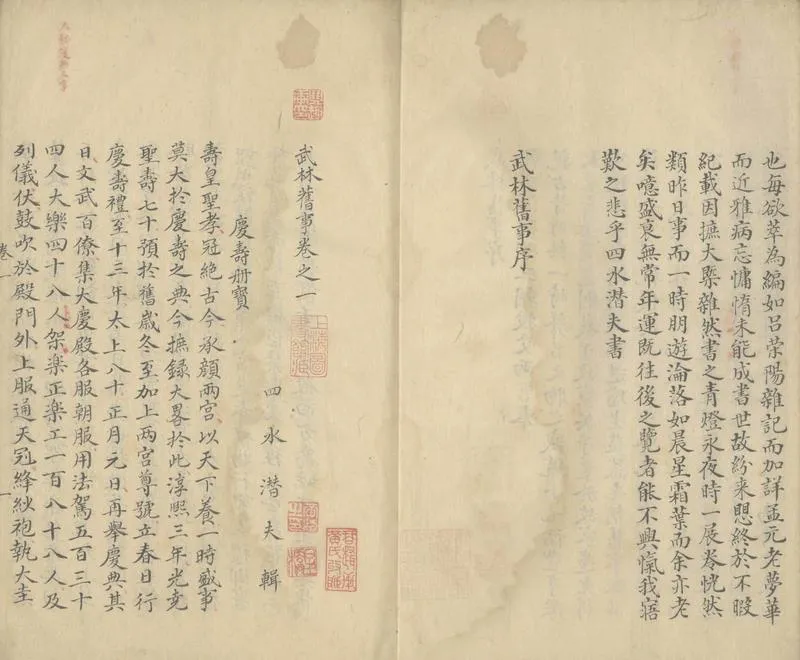 也每欲萃為編如呂荣陽雜記而加詳孟元老夢華
而近雅病忘慵惰未能成書世故紛来惧終於不暇
紀載因摭大槩雜然書之青燈永夜時一展卷恍然
類昨日事而一時朋遊淪落如晨星霜葉而余亦老
矣噫盛衰無常年運既往後之覽者能不興愾我寤
歎之悲乎四水潜夫書
武林舊事序
武林舊事卷之一
上海圖書館藏
四水潜夫輯
慶壽册寶
壽皇聖孝冠絶古今承顔兩宫以天下養一時盛事
莫大於慶壽之典今摭録大畧於此淳熈三年光堯
聖壽七十預於舊歲冬至加上兩宫尊號立春日行
慶壽禮至十三年太上八十正月元日再舉慶典其
日文武百僚集大慶殿各服朝服用法駕五百三十
四人大楽四十八人架楽正楽工一百八十八人及
列儀伏鼓吹於殿門外上服通天冠絳紗袍執大圭
卷一
一